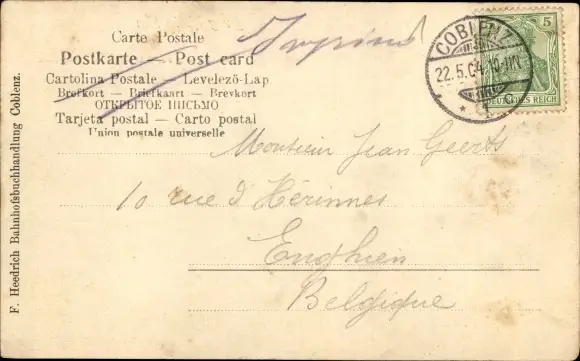 Carte Postale
Postkarte — Post card
Cartolina Postale — Levelező-Lap
Brefkort — Briefkaart — Brevkort
ОТКРЫТОЕ ПИСЬМО
Tarjeta postal — Carto postal
Union postale universelle
Imprimé
COBLENZ
22.5.04.10-11V.
* 1 c
5
DEUTSCHES REICH
Monsieur Jean Geerts
10 rue d'Hérinnes
Enghien
Belgique
F. Heedrich Bahnhofsbuchhandlung Coblenz.